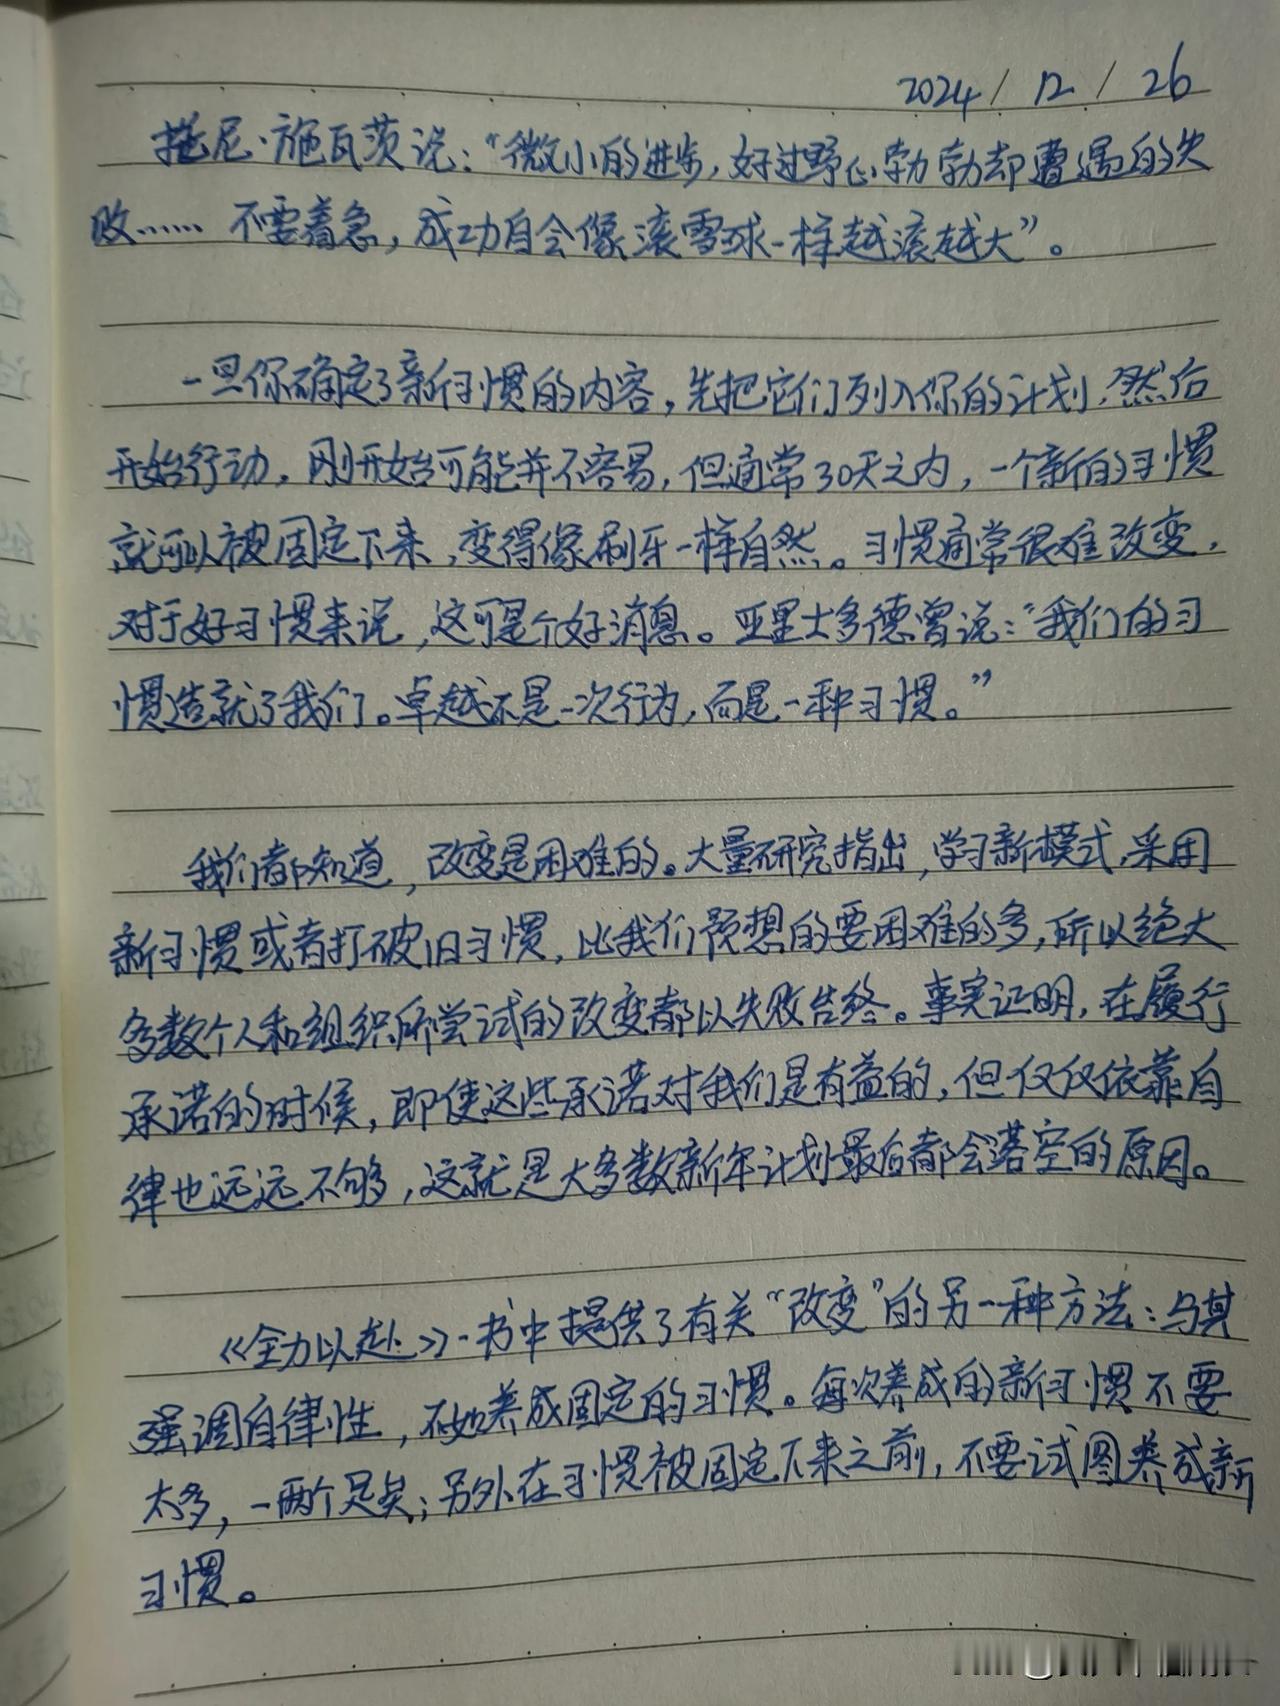 2024/12/26
托尼·施瓦茨说：“微小的进步，好过野心勃勃却遭遇的失
败……不要着急，成功自会像滚雪球一样越滚越大”。
一旦你确定了新习惯的内容，先把它们列入你的计划，然后
开始行动，刚开始可能并不容易，但通常30天之内，一个新的习惯
就可以被固定下来，变得像刷牙一样自然。习惯通常很难改变，
对于好习惯来说，这可是个好消息。亚里士多德曾说：“我们的习
惯造就了我们。卓越不是一次行为，而是一种习惯。”
我们都知道，改变是困难的。大量研究指出，学习新模式，采用
新习惯或者打破旧习惯，比我们预想的要困难的多，所以绝大
多数个人和组织所尝试的改变都以失败告终。事实证明，在履行
承诺的时候，即使这些承诺对我们是有益的，但仅仅依靠自
律也远远不够，这就是大多数新年计划最后都会落空的原因。
《全力以赴》一书中提供了有关“改变”的另一种方法：与其
强调自律性，不如养成固定的习惯。每次养成的新习惯不要
太多，一两个足矣；另外在习惯被固定下来之前，不要试图养成新
习惯。